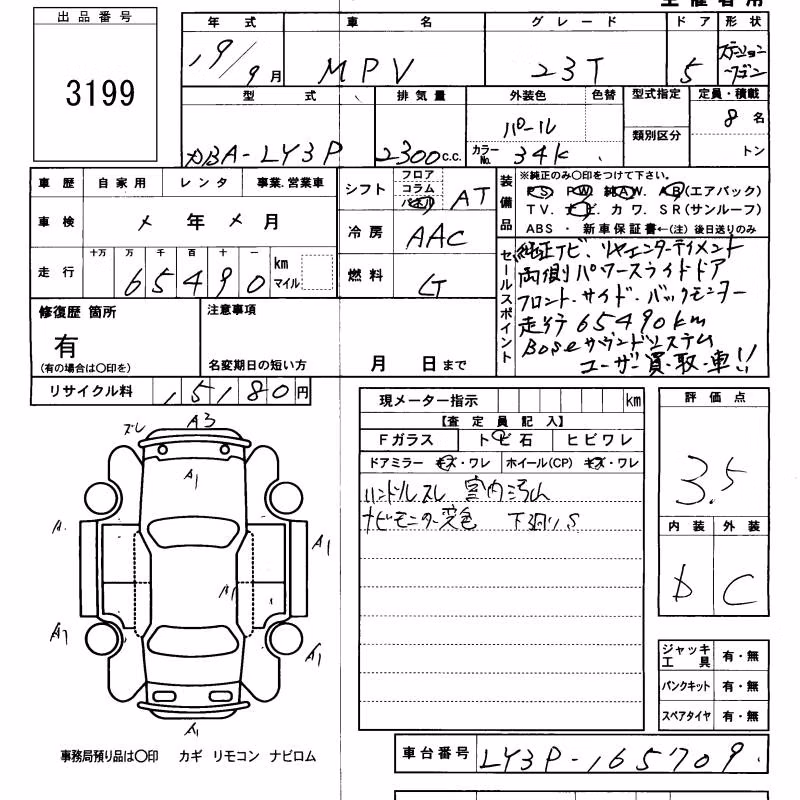 出品番号
3199
年式 車名 グレード ドア 形状
19/9月 MPV 23T 5 ステーションワゴン
型式 排気量 外装色 色替 型式指定 定員・積載
類別区分
DBA-LY3P 2300c.c. パール 8名
カラーNo. 34K トン
車歴 自家用 レンタ 事業.営業車
車検 メ年メ月
走行 十万 万 千 百 十 一
65490 km マイル
シフト フロア コラム パネル AT
冷房 AAC
燃料
装備品
※純正のみ○印をつけて下さい。
PS PW 純AW. AB(エアバック)
TV. ナビ. カワ. SR(サンルーフ)
ABS ・ 新車保証書←(注) 後日送りのみ
セールスポイント
純正ナビ、リヤエンターテイメント
両側パワースライドドア
フロント・サイド・バックモニター
走行65490km
Boseサウンドシステム
ユーザー買・取・車!!
修復歴 箇所
有
(有の場合は○印を)
注意事項
名変期日の短い方 月 日まで
リサイクル料 15180円
現メーター指示 km
【査定員記入】
Fガラス トビ石 ヒビワレ
ドアミラー キズ・ワレ ホイール(CP) キズ・ワレ
ハンドルスレ 室内汚れ
ナビモニター変色 下廻りS
評価点
3.5
内装 外装
D C
ズレ A3
A1
A
A1
A1
A1
A1
ジャッキ工具 有・無
パンクキット 有・無
スペアタイヤ 有・無
事務局預り品は○印 カギ リモコン ナビロム
車台番号 LY3P-165709